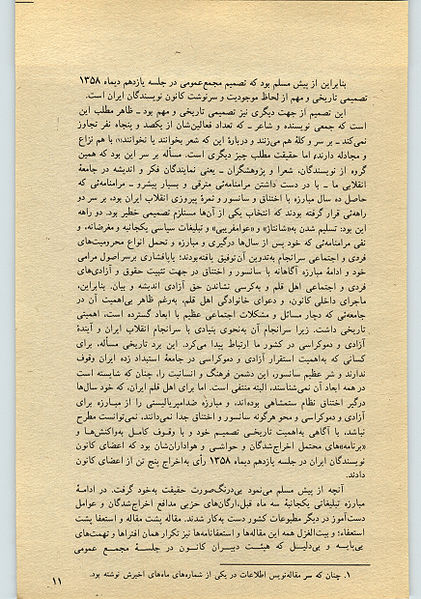 بنابراین از پیش مسلم بود که تصمیم مجمع‌عمومی در جلسه یازدهم دیماه ۱۳۵۸
تصمیمی تاریخی و مهم از لحاظ موجودیت و سرنوشت کانون نویسندگان ایران است.
این تصمیم از جهت دیگری نیز تصمیمی تاریخی و مهم بود ـ ظاهر مطلب این
است که جمعی نویسنده و شاعر ـ که تعداد فعالین‌شان از یکصد و پنجاه نفر تجاوز
نمی‌کند ـ بر سر و کلهٔ هم می‌زنند و دربارهٔ این که شعر بخوانند یا نخوانند(۱) با هم نزاع
و مجادله دارند، اما حقیقت مطلب چیز دیگری است. مسأله بر سر این بود که همین
گروه از نویسندگان، شعرا و پژوهشگران ـ یعنی نمایندگان فکر و اندیشه در جامعهٔ
انقلابی ما ـ با در دست داشتن مرامنامه‌ئی مترقی و بسیار پیشرو ـ مرامنامه‌ئی که
حاصل ده سال مبارزه با اختناق و سانسور و ثمرهٔ پیروزی انقلاب ایران بود، بر سر دو
راهه‌ئی قرار گرفته بودند که انتخاب یکی از آن‌ها مستلزم تصمیمی خطیر بود. دو راهه
این بود: تسلیم شدن به«شانتاژ» و «عوامفریبی» و تبلیغات سیاسی یکجانبه و مغرضانه، و
نفی مرامنامه‌ئی که خود پس از سال‌ها درگیری و مبارزه و تحمل انواع محرومیت‌های
فردی و اجتماعی سرانجام به‌تدوین آن‌توفیق یافته‌بودند؛ یاپافشاری برسراصول مرامی
خود و ادامهٔ مبارزه آگاهانه با سانسور و اختناق در جهت تثبیت حقوق و آزادی‌های
فردی و اجتماعی اهل قلم و به‌کرسی نشاندن حق آزادی اندیشه و بیان. بنابراین،
ماجرای داخلی کانون، و دعوای خانوادگی اهل قلم، به‌رغم ظاهر بی‌اهمیت آن در
جامعه‌ئی که دچار مسائل و مشکلات اجتماعی عظیم با ابعاد گسترده است، اهمیتی
تاریخی داشت. زیرا سرانجام آن به‌نحوی بنیادی با سرانجام انقلاب ایران و آیندهٔ
آزادی و دموکراسی در کشور ما ارتباط پیدا می‌کرد. این برد تاریخی مسأله، برای
کسانی که به‌اهمیت استقرار آزادی و دموکراسی در جامعهٔ استبداد زده ایران وقوف
ندارند و شر عظیم سانسور، این دشمن فرهنگ و انسانیت را، چنان که شایسته است
در همه ابعاد آن نمی‌شناسند، البته منتفی است. اما برای اهل قلم ایران، که خود سال‌ها
درگیر اختناق نظام ستمشاهی بوده‌اند، و مبارزه ضدامپریالیستی را از مبارزه برای
آزادی و دموکراسی و محو هرگونه سانسور و اختناق جدا نمی‌دانند، نمی‌توانست مطرح
نباشد. با آگاهی به‌اهمیت تاریخی تصمیم خود و با وقوف کامل به‌واکنش‌ها و
«برنامه»های محتمل اخراج‌شدگان و حواشی و هواداران‌شان بود که اعضای کانون
نویسندگان ایران در جلسه یازدهم دیماه ۱۳۵۸ رأی به‌اخراج پنج تن از اعضای کانون
دادند.
آنچه از پیش مسلم می‌نمود بی‌درنگ‌صورت حقیقت به‌خود گرفت. در ادامهٔ
مبارزه تبلیغاتی یکجانبهٔ سه ماه قبل،ارگان‌های حزبی مدافع اخراج‌شدگان و عوامل
دست‌آموز در دیگر مطبوعات کشور دست به‌کار شدند. مقاله پشت مقاله و استعفا پشت
استعفاء؛ و بیت‌الغزل همه این مقاله‌ها و استعفانامه‌ها نیز تکرار همان افتراها و تهمت‌های
بی‌پایه و بی‌دلیل که هیئت دبیران کانون در جلسهٔ مجمع عمومی
۱. چنان که سر مقاله‌نویس اطلاعات در یکی از شماره‌های ماه‌های اخیرش نوشته بود.
۱۱